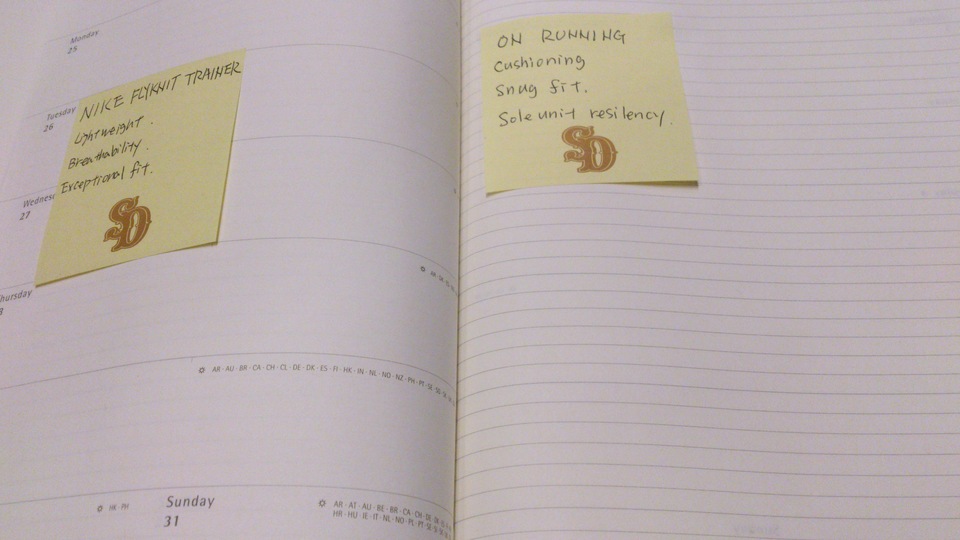 Monday
25
Tuesday
26
NIKE FLYKNIT TRAINER
Lightweight.
Breathability.
Exceptional fit.
SD
27
Sunday
31
HK · PH
AR · AU · BR · CA · CH · CL · DE · DK · ES · FI · HK · IN · NL · NO · NZ · PH · PT · SE
AR · AT · AU · BE · BR · CA · CH
HR · HU · IE · IT · NL · NO · PL · PT · SE
ON RUNNING
Cushioning
Snug fit.
Sole unit resilency.
SD